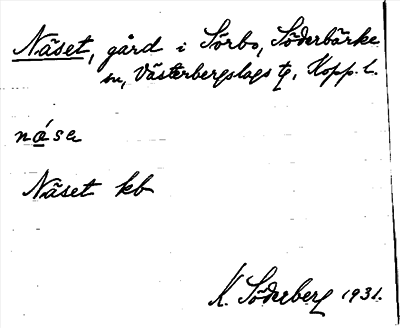 Näset, gård i Sörbo, Söderbärke
sn, Västerbergslags tg, Kopp. l.
nása
Näset kb
K. Söderberg 1931.